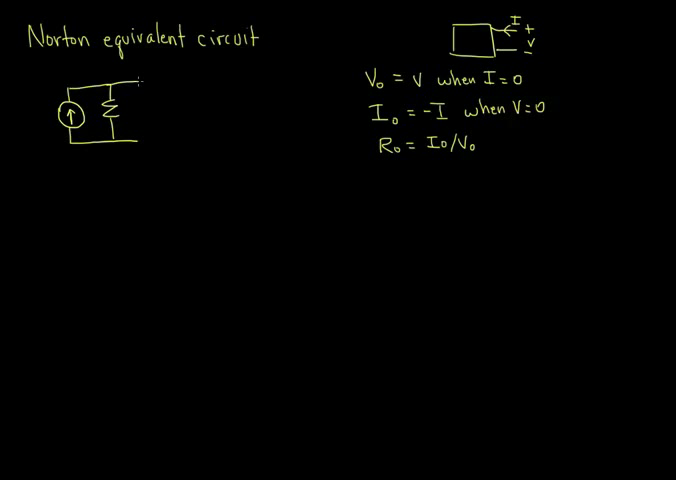 Norton equivalent circuit
I
+
V
-
V₀ = V when I=0
I₀ = -I when V=0
R₀ = I₀/V₀